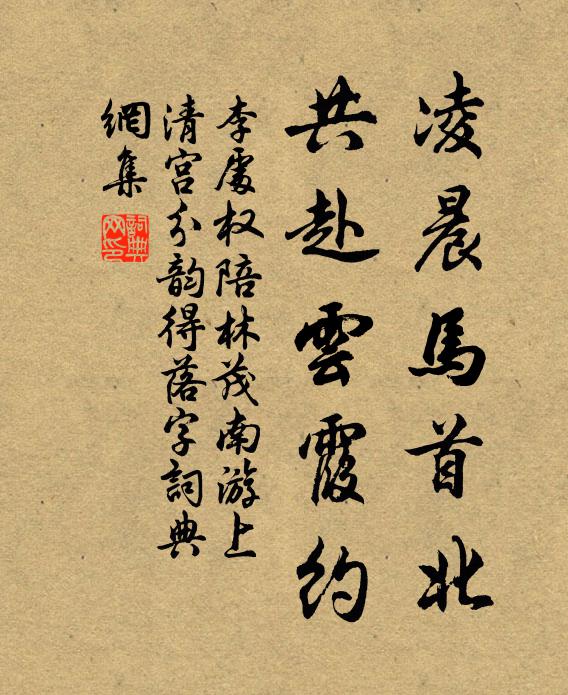 凌晨馬首北
共赴雲霞約
李處权陪林茂南游上
清宫分韵得落字詞典
網集
詞典网印